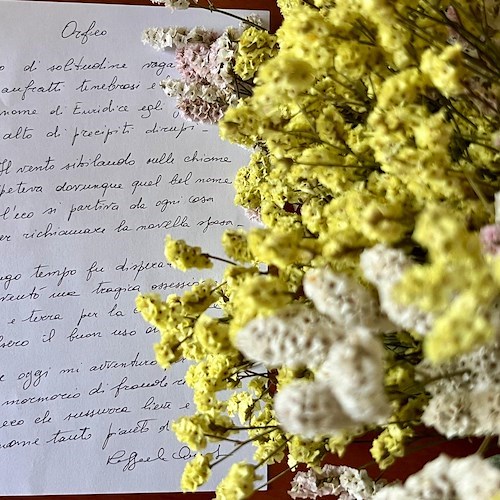 Orfeo
o di solitudine vaga
anfratti tenebrosi e
nome di Euridice egli
alto di precipiti dirupi -
Il vento sibilando sulle chiome
peteva dovunque quel bel nome
l'eco si partiva da ogni cosa
er richiamare la novella sposa -
ngo tempo fu dispera
ventò una tragica ossessi
e terra per la
sero il buon uso
e oggi mi avventuro
mormorio di fronde
eco che sussurra lieve e
nome tanto pianto d
Raffaele